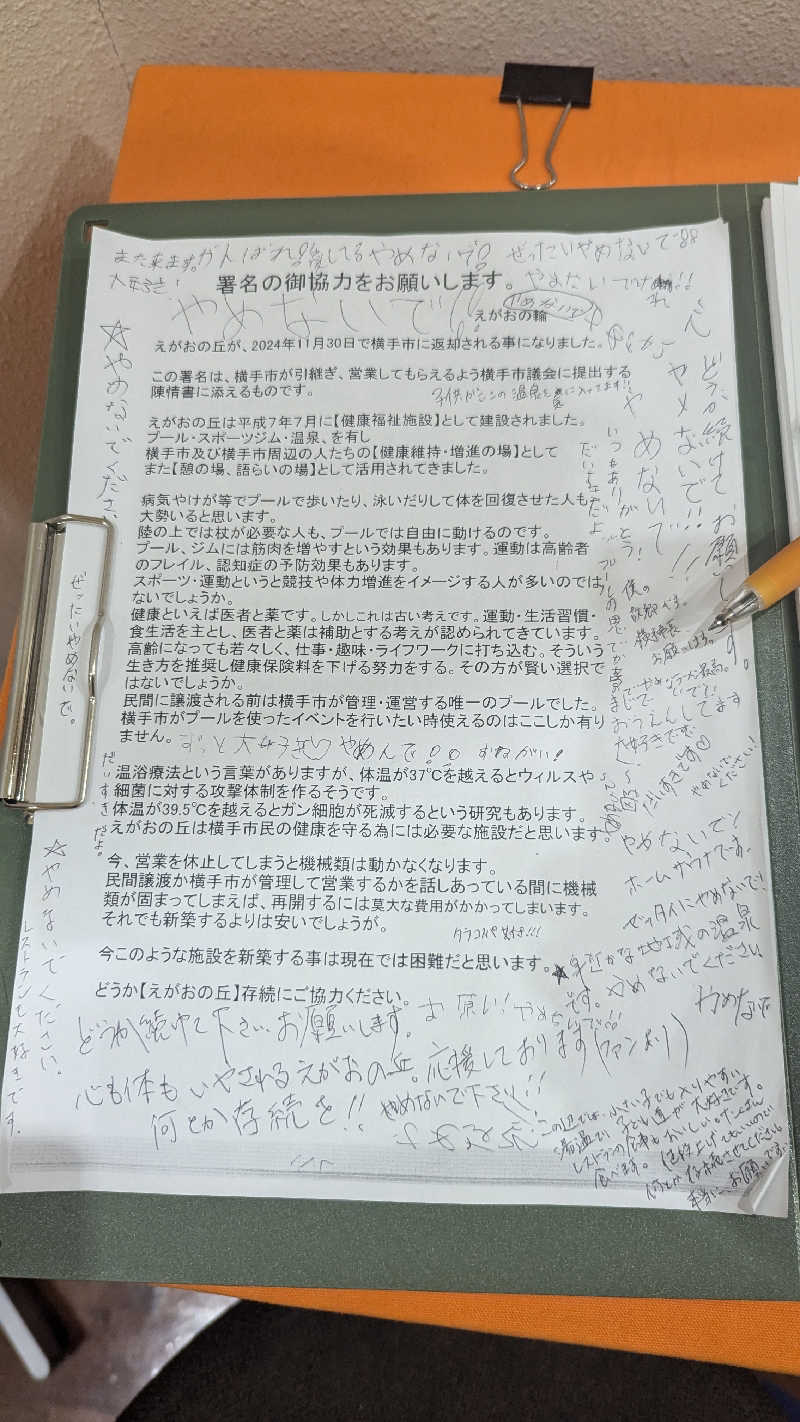 また来ます。がんばれ!!
ぜったいやめないで
大好き!
署名の御協力をお願いします。
やめないで!!
やめないで
えがおの輪
えがおの丘が、2024年11月30日で横手市に返却される事になりました。
この署名は、横手市が引継ぎ、営業してもらえるよう横手市議会に提出する
陳情書に添えるものです。
えがおの丘は平成7年7月に【健康福祉施設】として建設されました。
プール・スポーツジム・温泉、を有し
横手市及び横手市周辺の人たちの【健康維持・増進の場】として
また【憩の場、語らいの場】として活用されてきました。
病気やけが等でプールで歩いたり、泳いだりして体を回復させた人も
大勢いると思います。
陸の上では杖が必要な人も、プールでは自由に動けるのです。
プール、ジムには筋肉を増やすという効果もあります。運動は高齢者
のフレイル、認知症の予防効果もあります。
スポーツ・運動というと競技や体力増進をイメージする人が多いのでは
ないでしょうか。
健康といえば医者と薬です。しかしこれは古い考えです。運動・生活習慣・
食生活を主とし、医者と薬は補助とする考えが認められてきています。
高齢になっても若々しく、仕事・趣味・ライフワークに打ち込む。そういう
生き方を推奨し健康保険料を下げる努力をする。その方が賢い選択で
はないでしょうか。
民間に譲渡される前は横手市が管理・運営する唯一のプールでした。
横手市がプールを使ったイベントを行いたい時使えるのはここしか有り
ません。
ずっと大好き♡やめんで!!
おねがい!
温浴療法という言葉がありますが、体温が37℃を越えるとウィルスや
細菌に対する攻撃体制を作るそうです。
体温が39.5℃を越えるとガン細胞が死滅するという研究もあります。
えがおの丘は横手市民の健康を守る為には必要な施設だと思います。
今、営業を休止してしまうと機械類は動かなくなります。
民間譲渡か横手市が管理して営業するかを話しあっている間に機械
類が固まってしまえば、再開するには莫大な費用がかかってしまいます。
それでも新築するよりは安いでしょうが。
今このような施設を新築する事は現在では困難だと思います。
どうか【えがおの丘】存続にご協力ください。
どうか続けて下さい。お願いします。
心も体もいやされるえがおの丘。応援しております(ファンより)
何とか存続を!!
やめないで下さい!!
☆やめないでください
ぜったいやめないで。
だいすきだよ。
☆やめないでください。
レストランも大好きです。
どうか続けてお願いします。
ヤメないで!!
やめないで!!
いつもありがとう!
だいすきだよ
おうえんしてます
大好きです。
やめないでください!
やめないで!
ホームサウナです。
ゼッタイにやめないで!
★身近かな地域の温泉
です。やめないでください
やめないで
この辺では、小さい子でも入りやすい
湯温で、子ども達が大好きです。
レストランの食事もおいしい。たくさん
食べます。値段上げてもいいので
何とか存続させてください。